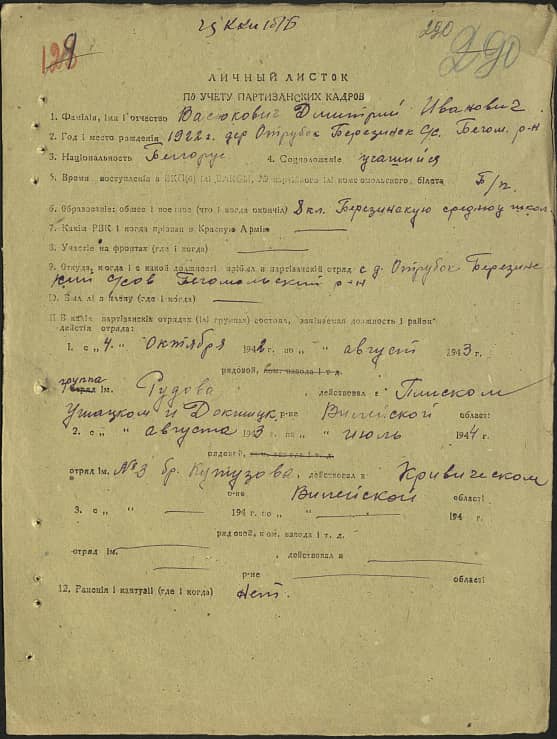 290
290
129
ЛИЧНЫЙ ЛИСТОК
ПО УЧЕТУ ПАРТИЗАНСКИХ КАДРОВ
1. Фамілія, імя і отчество Васюкович Дмитрий Иванович
2. Год і место рождения 1922 г. дер Отрубок Березинск С/с. Бегом. р-н
3. Національность Белорус 4. Соцположение учащийся
5. Время вступления в ВКП(б) ілі ВЛКСМ, № партійного ілі комсомольского білета Б/п.
6. Образованіе: общее і военное (что і когда окончіл) 8 кл. Березинскую среднюю школ.
7. Какім РВК і когда прізван в Красную Армію
8. Участіе на фронтах (где і когда)
9. Откуда, когда і с какой должності прібыл в партізанскій отряд с д. Отрубок Березинс
кий с/сов Бегомольский р-н
10. Был лі в плену (где і когда)
11. В какіх партізанскіх отрядах (ілі группах) состоял, занімаемая должность і район
действія отряда:
1. с „4„ Октября 1942 г. по „ „ август 1943 г.
рядовой, ком. взвода і т. д.
группа
отряд ім. Рудова, действовал в Плиском
Ушацком и Докшицк. р-не Вилейской області
2. с „ „ августа 1943 г. по „ „ июль 1944 г.
рядовой, ком. взвода і т. д.
отряд ім. №3 бр. Кутузова, действовал в Кривическом
р-не Вилейской області
3. с „ „ 194 г. по „ „ 194 г.
рядовой, ком. взвода і т. д.
отряд ім. , действовал в
р-не області
12. Ранения і контузіі (где і когда) нет.